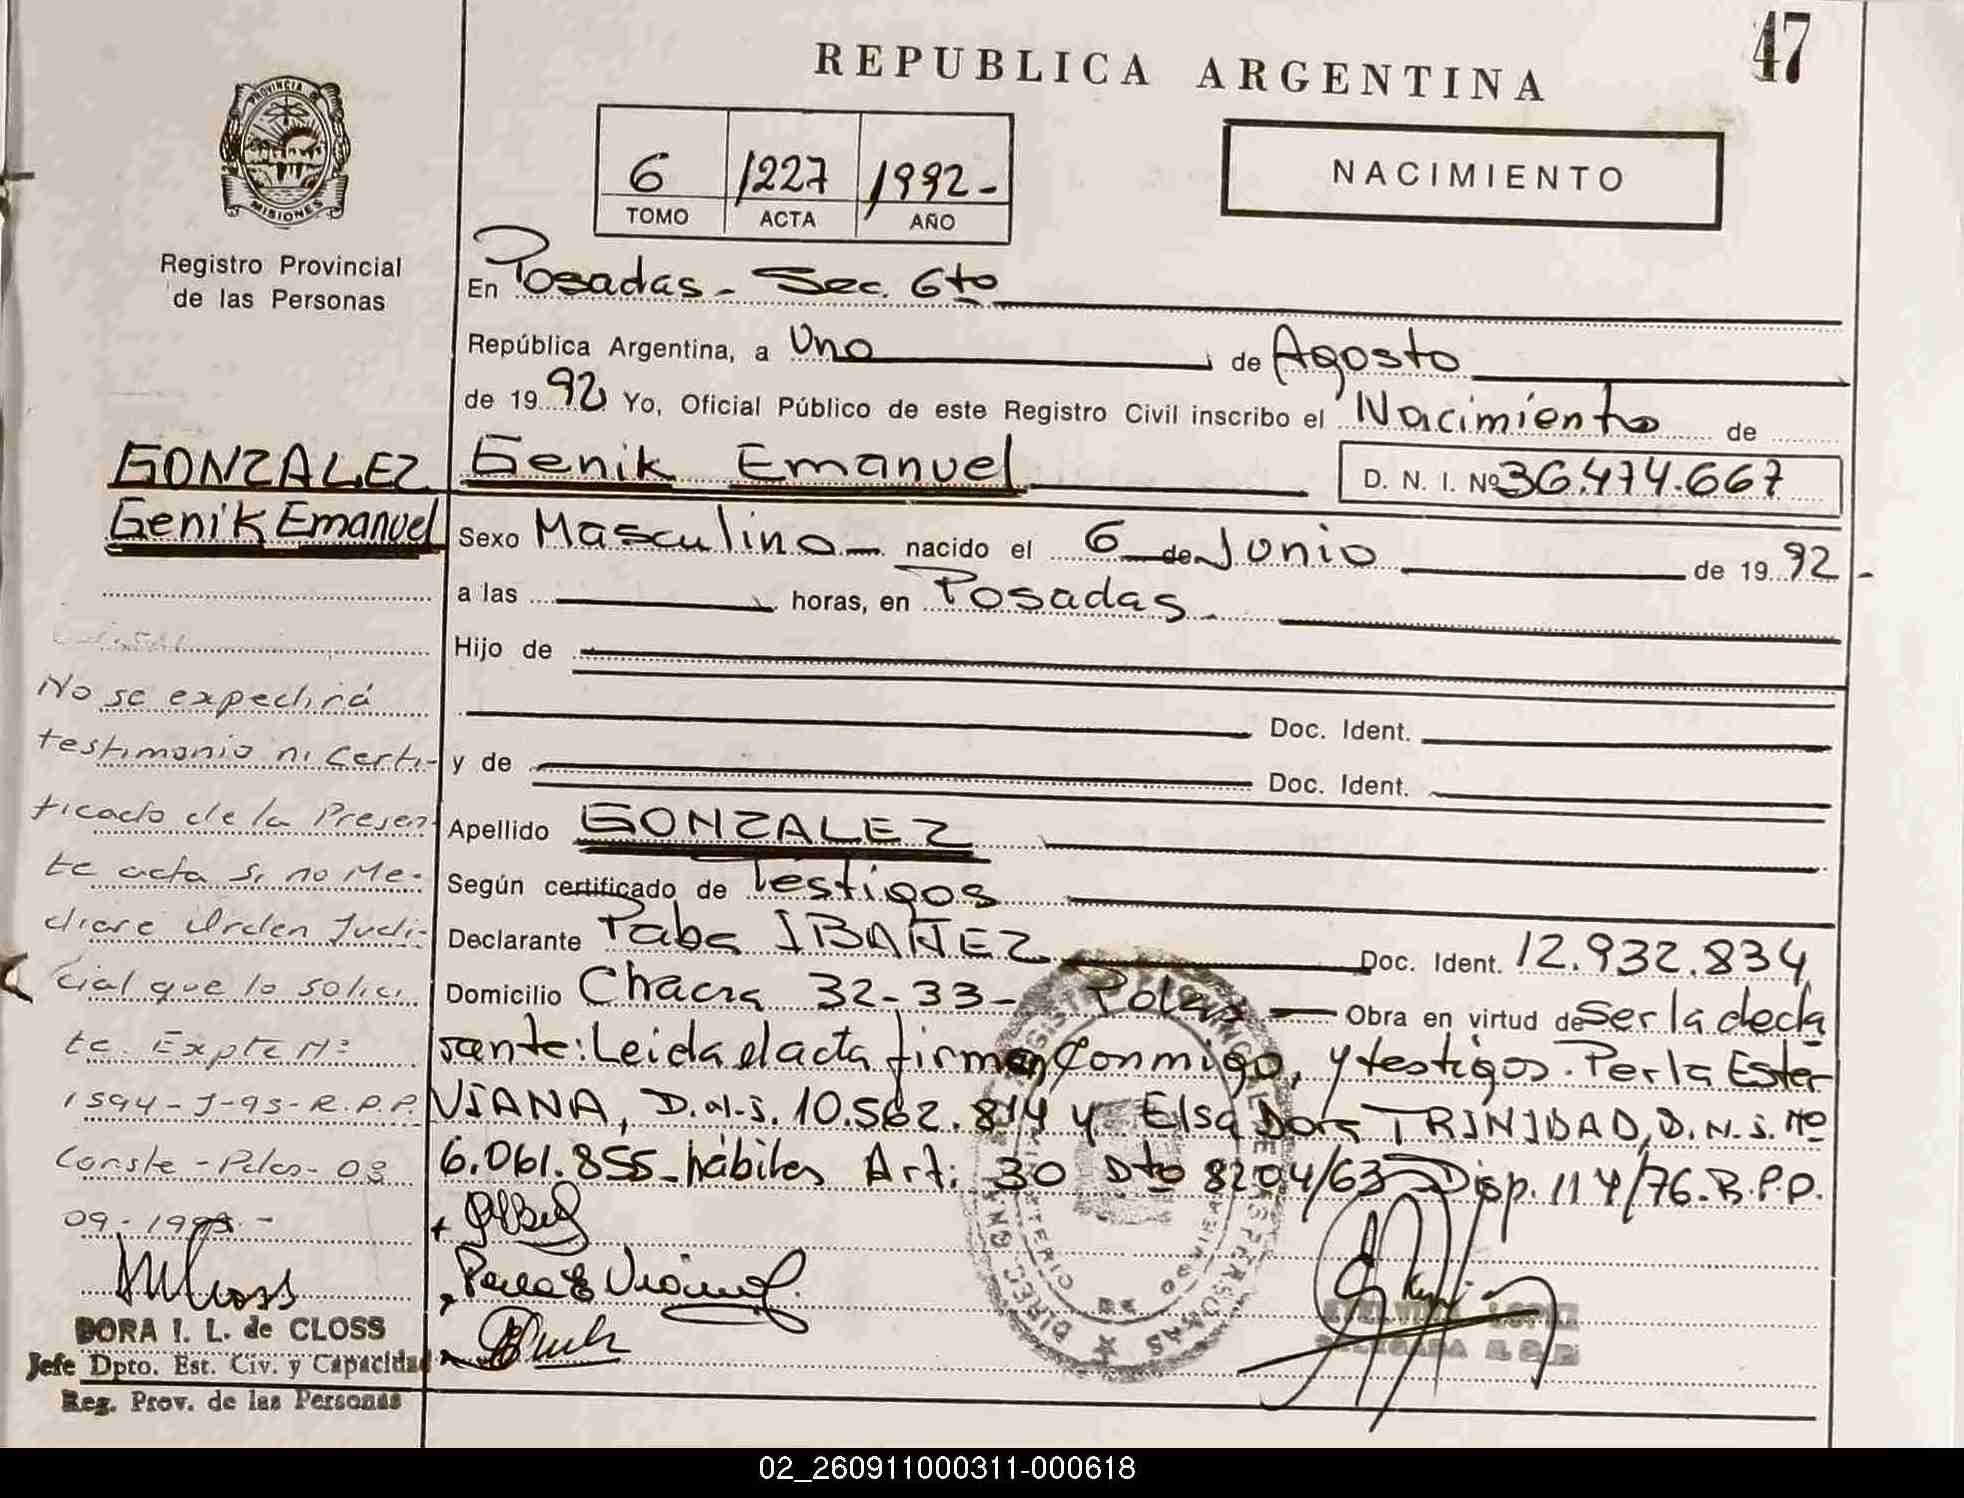 47
REPUBLICA ARGENTINA
NACIMIENTO
6 1227 1992-
TOMO ACTA AÑO
PROVINCIA DE
MISIONES
Registro Provincial
de las Personas
En Posadas - Sec. 6to
República Argentina, a Uno de Agosto
de 1992 Yo, Oficial Público de este Registro Civil inscribo el Nacimiento de
Genik Emanuel D. N. I. Nº 36.474.667
Sexo Masculino nacido el 6 de Junio de 1992-
a las horas, en Posadas
Hijo de
Doc. Ident.
y de Doc. Ident.
Apellido GONZALEZ
Según certificado de Testigos
Declarante IBAÑEZ Doc. Ident. 12.932.834
Domicilio Chacra 32-33- Obra en virtud de Ser la decla
rante: Leida el acta firman conmigo, y testigos. Perla Ester
VIANA, D.N.I. 10.562.814 y Elsa Dora TRINIDAD, D.N.I. Nº
6.061.855- hábiles Art. 30 Dto 8204/63 Disp. 114/76-R.P.P.
GONZALEZ
Genik Emanuel
No se expedirá
testimonio ni Certi-
ficado de la Presen-
te acta si no Me-
diare Orden Judi-
cial que lo solici
te. Expte Nº
1594-J-93-R.P.P.
Conste - Pdas- 08
09-1993.-
DORA I. L. de CLOSS
Jefe Dpto. Est. Civ. y Capacidad
Reg. Prov. de las Personas
02_260911000311-000618